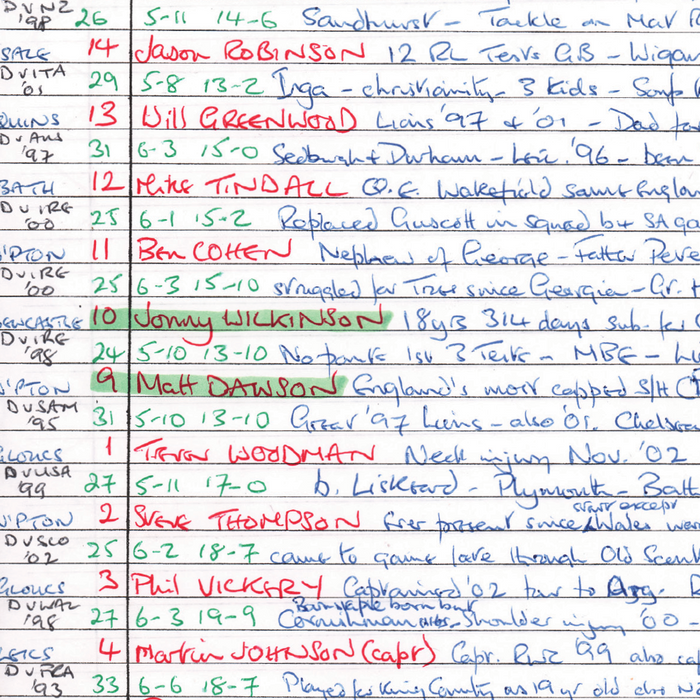 DVNZ '98 26 5-11 14-6 Sandhurst - Tackle on Mat
SALE 14 Jason ROBINSON 12 RL Tests GB - Wigan
DVITA '01 29 5-8 13-2 Inga - christianity - 3 kids - Soup
QUINS 13 Will GREENWOOD Lions '97 & '01 - Dad
DVAUS '97 31 6-3 15-0 Sedburgh & Durham - Leic. '96 - been
BATH 12 Mike TINDALL Q.E. Wakefield same
DVIRE '00 25 6-1 15-2 Replaced Guscott in squad but SA
N'PTON 11 Ben COHEN Nephew of George - Father Pete
DVIRE '00 25 6-3 15-10 struggled for Tries since Georgia - Gr.
NEWCASTLE 10 Jonny WILKINSON 18yrs 314 days sub. for
DVIRE '98 24 5-10 13-10 No points 1st 3 Tests - MBE -
N'PTON 9 Matt DAWSON England's most capped S/H
DVSAM '95 31 5-10 13-10 Great '97 Lions - also '01. Chelsea
GLOUCS 1 Trevor WOODMAN Neck injury Nov. '02
DVUSA '99 27 5-11 17-0 b. Liskeard - Plymouth -
N'PTON 2 Steve THOMPSON Ever present since Wales
start except
DVSCO '02 25 6-2 18-7 came to game late through Old
GLOUCS 3 Phil VICKERY Captained '02 tour to Arg.
Barnstaple born but
DVWAL '98 27 6-3 19-9 Cornishman - Shoulder injury '00 -
LEICS 4 Martin JOHNSON (capt) Capt. RWC '99 also
DVFRA '93 33 6-6 18-7 Played for King Country as 19 yr old also